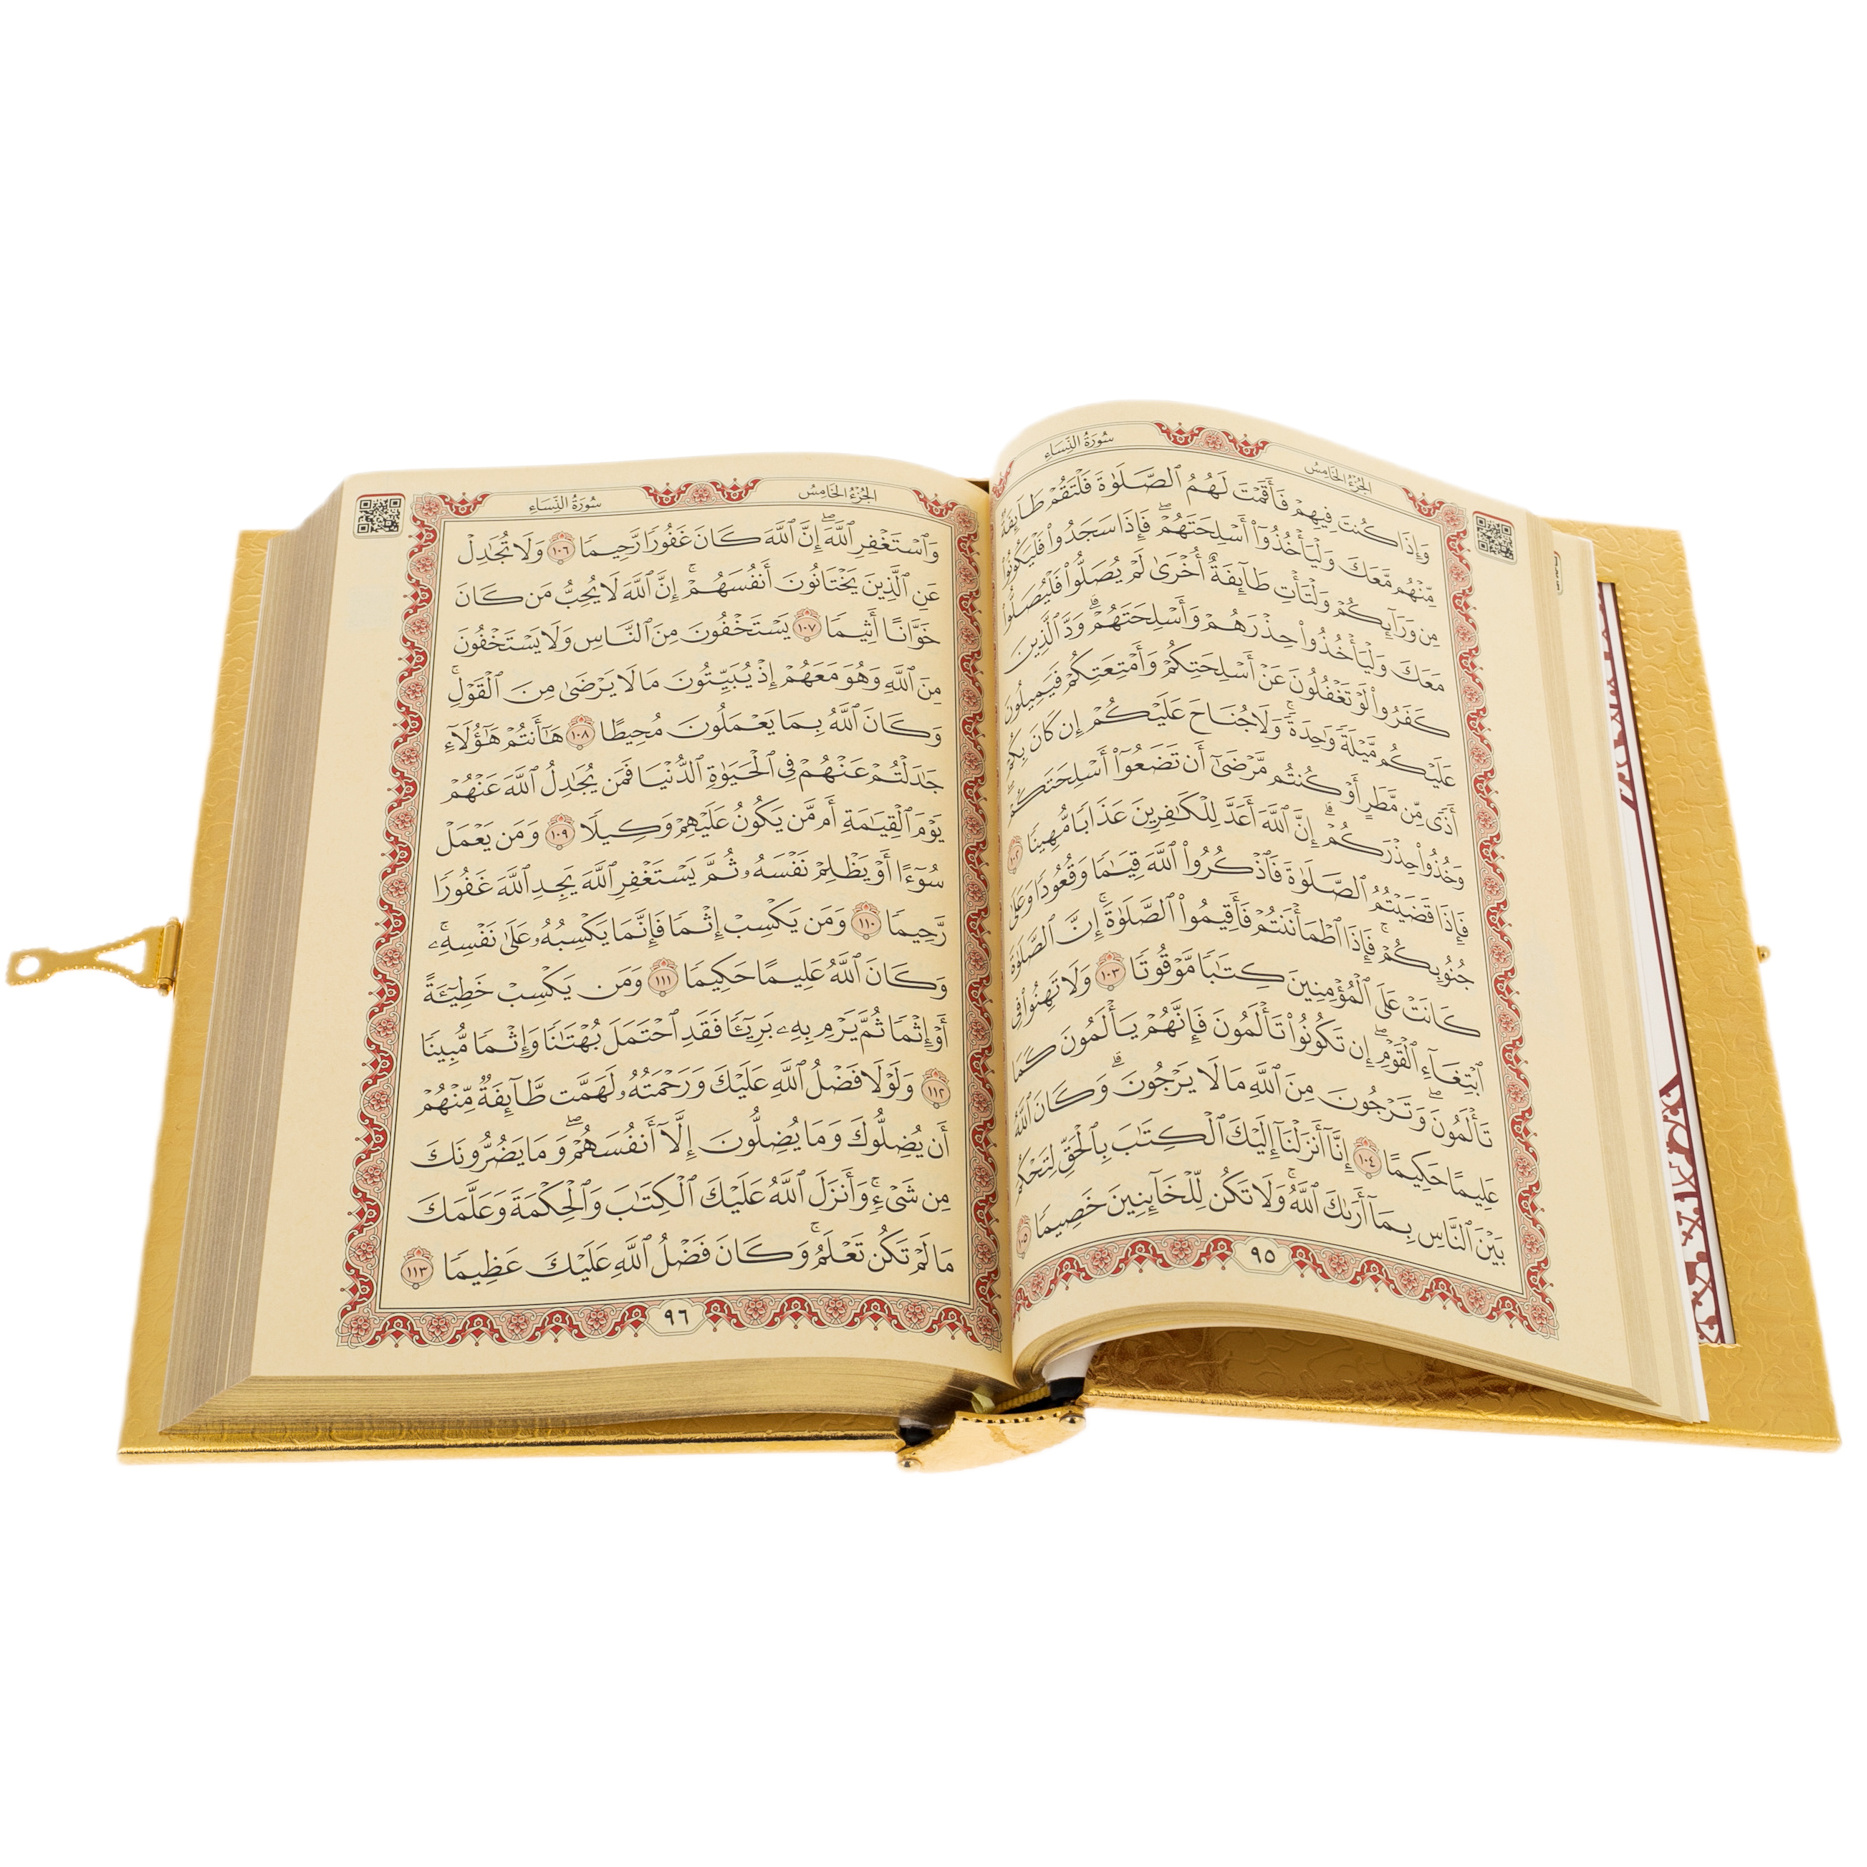 الجُزْءُ الخَامِسُ
سُورَةُ النِّسَاءِ
وَإِذَا كُنتَ فِيهِمْ فَأَقَمْتَ لَهُمُ ٱلصَّلَوٰةَ فَلْتَقُمْ طَآئِفَةٌ
مِّنْهُم مَّعَكَ وَلْيَأْخُذُوٓا۟ أَسْلِحَتَهُمْ ۖ فَإِذَا سَجَدُوا۟ فَلْيَكُونُوا۟
مِن وَرَآئِكُمْ وَلْتَأْتِ طَآئِفَةٌ أُخْرَىٰ لَمْ يُصَلُّوا۟ فَلْيُصَلُّوا۟
مَعَكَ وَلْيَأْخُذُوا۟ حِذْرَهُمْ وَأَسْلِحَتَهُمْ ۗ وَدَّ ٱلَّذِينَ
كَفَرُوا۟ لَوْ تَغْفُلُونَ عَنْ أَسْلِحَتِكُمْ وَأَمْتِعَتِكُمْ فَيَمِيلُونَ
عَلَيْكُم مَّيْلَةً وَٰحِدَةً ۚ وَلَا جُنَاحَ عَلَيْكُمْ إِن كَانَ بِكُمْ
أَذًى مِّن مَّطَرٍ أَوْ كُنتُم مَّرْضَىٰٓ أَن تَضَعُوٓا۟ أَسْلِحَتَكُمْ ۖ
وَخُذُوا۟ حِذْرَكُمْ ۗ إِنَّ ٱللَّهَ أَعَدَّ لِلْكَٰفِرِينَ عَذَابًا مُّهِينًا ١٠٢
فَإِذَا قَضَيْتُمُ ٱلصَّلَوٰةَ فَٱذْكُرُوا۟ ٱللَّهَ قِيَٰمًا وَقُعُودًا وَعَلَىٰ
جُنُوبِكُمْ ۚ فَإِذَا ٱطْمَأْنَنتُمْ فَأَقِيمُوا۟ ٱلصَّلَوٰةَ ۚ إِنَّ ٱلصَّلَوٰةَ
كَانَتْ عَلَى ٱلْمُؤْمِنِينَ كِتَٰبًا مَّوْقُوتًا ١٠٣ وَلَا تَهِنُوا۟ فِى
ٱبْتِغَآءِ ٱلْقَوْمِ ۖ إِن تَكُونُوا۟ تَأْلَمُونَ فَإِنَّهُمْ يَأْلَمُونَ كَمَا
تَأْلَمُونَ ۖ وَتَرْجُونَ مِنَ ٱللَّهِ مَا لَا يَرْجُونَ ۗ وَكَانَ ٱللَّهُ
عَلِيمًا حَكِيمًا ١٠٤ إِنَّآ أَنزَلْنَآ إِلَيْكَ ٱلْكِتَٰبَ بِٱلْحَقِّ لِتَحْكُمَ
بَيْنَ ٱلنَّاسِ بِمَآ أَرَىٰكَ ٱللَّهُ ۚ وَلَا تَكُن لِّلْخَآئِنِينَ خَصِيمًا ١٠٥
٩٥
الجُزْءُ الخَامِسُ
سُورَةُ النِّسَاءِ
وَٱسْتَغْفِرِ ٱللَّهَ ۖ إِنَّ ٱللَّهَ كَانَ غَفُورًا رَّحِيمًا ١٠٦ وَلَا تُجَٰدِلْ
عَنِ ٱلَّذِينَ يَخْتَانُونَ أَنفُسَهُمْ ۚ إِنَّ ٱللَّهَ لَا يُحِبُّ مَن كَانَ
خَوَّانًا أَثِيمًا ١٠٧ يَسْتَخْفُونَ مِنَ ٱلنَّاسِ وَلَا يَسْتَخْفُونَ
مِنَ ٱللَّهِ وَهُوَ مَعَهُمْ إِذْ يُبَيِّتُونَ مَا لَا يَرْضَىٰ مِنَ ٱلْقَوْلِ ۚ
وَكَانَ ٱللَّهُ بِمَا يَعْمَلُونَ مُحِيطًا ١٠٨ هَٰٓأَنتُمْ هَٰٓؤُلَآءِ
جَٰدَلْتُمْ عَنْهُمْ فِى ٱلْحَيَوٰةِ ٱلدُّنْيَا فَمَن يُجَٰدِلُ ٱللَّهَ عَنْهُمْ
يَوْمَ ٱلْقِيَٰمَةِ أَم مَّن يَكُونُ عَلَيْهِمْ وَكِيلًا ١٠٩ وَمَن يَعْمَلْ
سُوٓءًا أَوْ يَظْلِمْ نَفْسَهُۥ ثُمَّ يَسْتَغْفِرِ ٱللَّهَ يَجِدِ ٱللَّهَ غَفُورًا
رَّحِيمًا ١١٠ وَمَن يَكْسِبْ إِثْمًا فَإِنَّمَا يَكْسِبُهُۥ عَلَىٰ نَفْسِهِۦ ۚ
وَكَانَ ٱللَّهُ عَلِيمًا حَكِيمًا ١١١ وَمَن يَكْسِبْ خَطِيٓـَٔةً
أَوْ إِثْمًا ثُمَّ يَرْمِ بِهِۦ بَرِيٓـًٔا فَقَدِ ٱحْتَمَلَ بُهْتَٰنًا وَإِثْمًا مُّبِينًا
١١٢ وَلَوْلَا فَضْلُ ٱللَّهِ عَلَيْكَ وَرَحْمَتُهُۥ لَهَمَّت طَّآئِفَةٌ مِّنْهُمْ
أَن يُضِلُّوكَ وَمَا يُضِلُّونَ إِلَّآ أَنفُسَهُمْ ۖ وَمَا يَضُرُّونَكَ
مِن شَىْءٍ ۚ وَأَنزَلَ ٱللَّهُ عَلَيْكَ ٱلْكِتَٰبَ وَٱلْحِكْمَةَ وَعَلَّمَكَ
مَا لَمْ تَكُن تَعْلَمُ ۚ وَكَانَ فَضْلُ ٱللَّهِ عَلَيْكَ عَظِيمًا ١١٣
٩٦